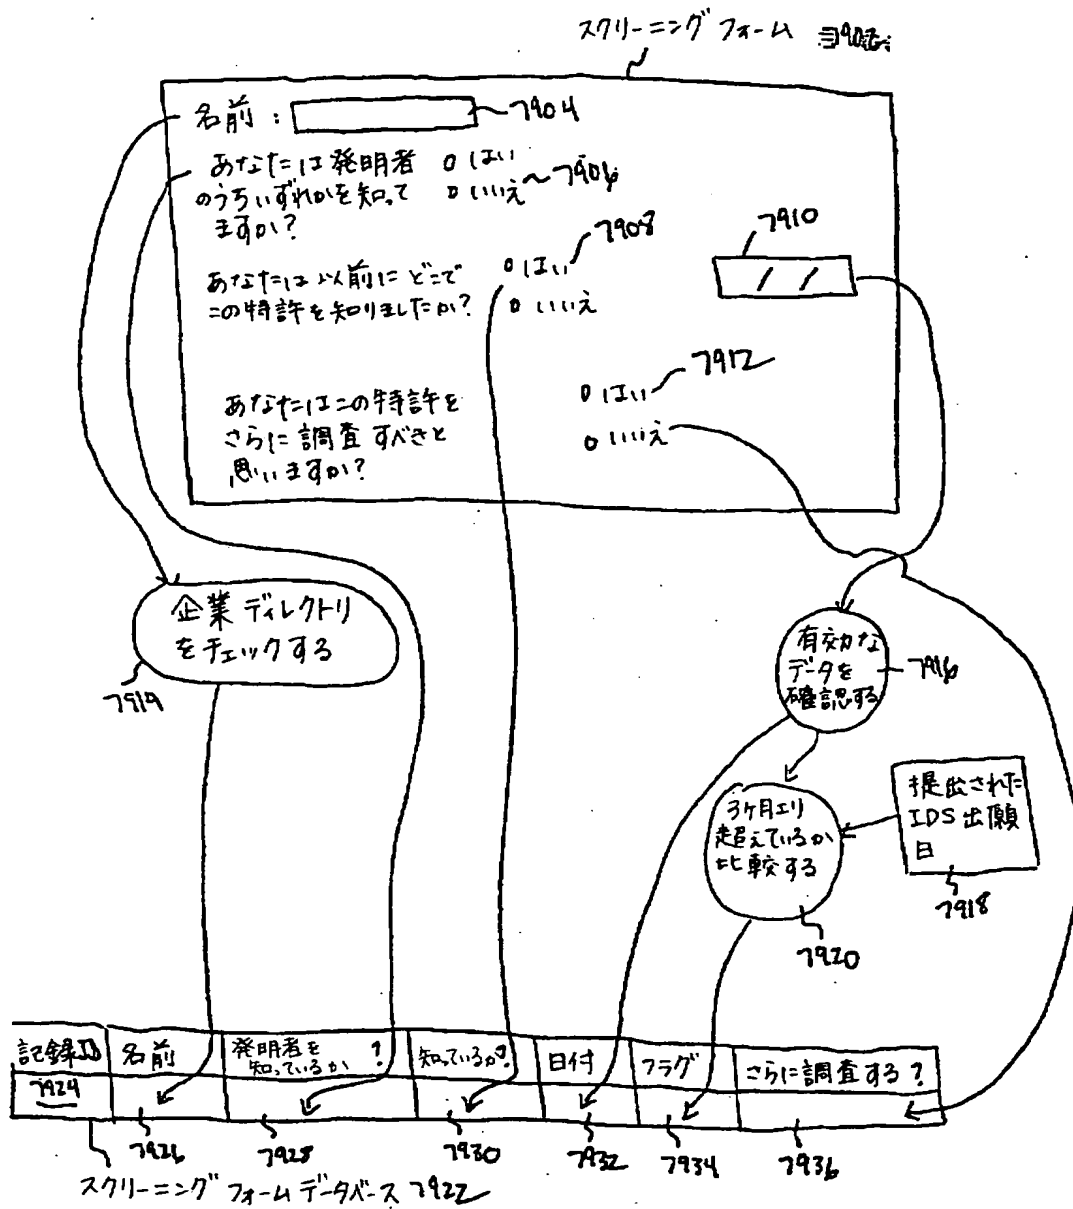 スクリーニング フォーム
名前 : 7904
あなたは発明者 はい
のうちいずれかを知って いいえ 7906
ますか?
7908
7910
あなたは以前にどこで はい / /
この特許を知りましたか? いいえ
7912
あなたはこの特許を はい
さらに調査すべきと いいえ
思いますか?
企業ディレクトリ
をチェックする
7914
有効な
データを
確認する
7916
3ヶ月より
超えているか
比較する
7920
提出された
IDS出願
日
7918
記録ID 名前 発明者を知っているか? 知っているか? 日付 フラグ さらに調査する?
7924
7926 7928 7930 7932 7934 7936
スクリーニング フォームデータベース 7922